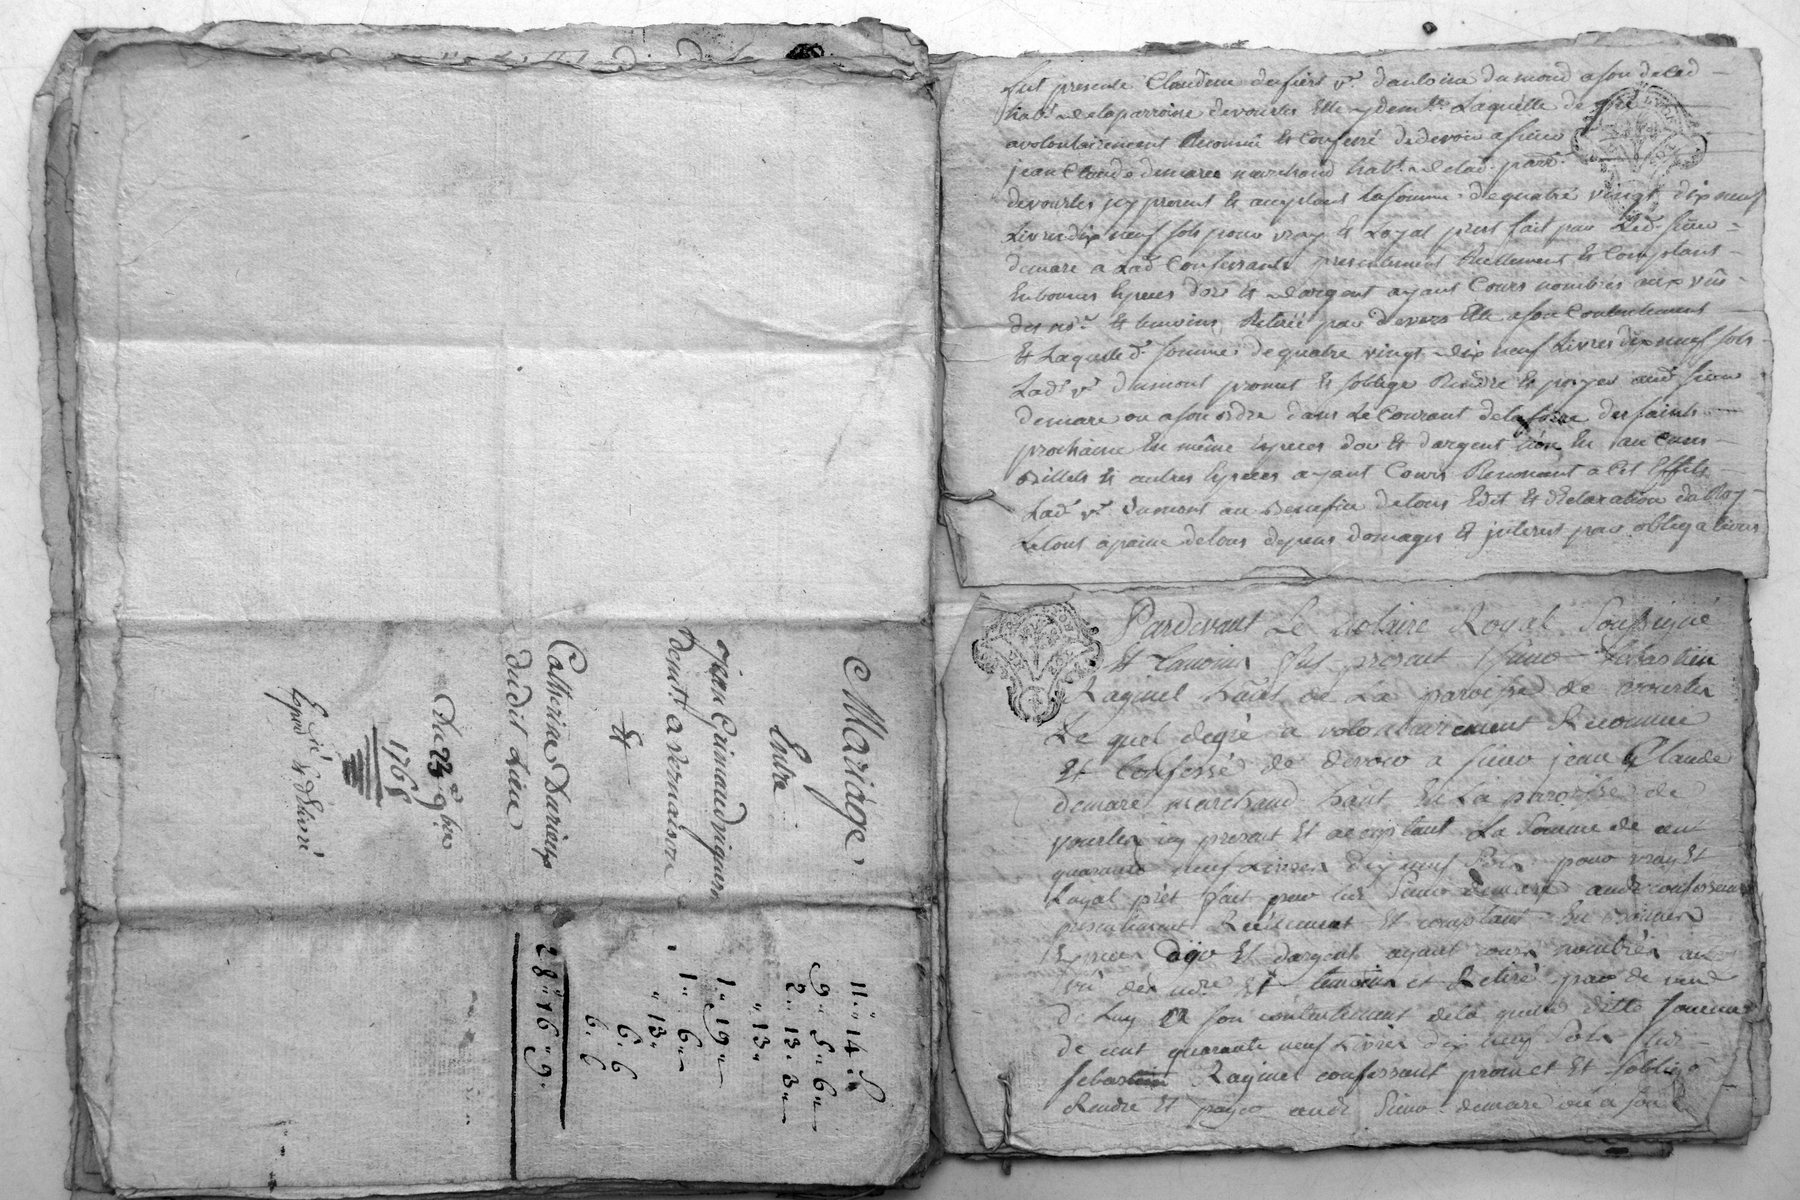 Mariage
Entre
jean Grimaud vigneron
demt. a vernaison
Et
Catherine Durieux
dudit Lieu
Du 23e 9bre
1765
Exp.é & délivré
11" 14"
9" 5" 6"
2" 13" 3"
" 13"
1" 19"
1" 6"
" 13"
6. 6
6. 6
28" 16" 9.
fut presente Claudine v.e d'antoine dumond a son deced
hab.e de la parroisse de vourles Elle y dem.te Laquelle de gré
a volontairement Reconnu & Confessé de devoir a sieur
jean Claude demare marchand hab.t de lad. parr.
de vourles icy present & acceptant la somme de quatre vingt dix neuf
Livres dix neuf sols pour vray & Loyal prest fait par Led. sieur
demare a Lad. Confessante presentement Reellement & Comptant
En bonnes Especes d'or & d'argent ayant Cours nombrées aux vûe
des no.re & temoins Retirée par devers Elle a son Contentement
& Laquelle d. somme de quatre vingt dix neuf Livres dix neuf sols
Lad.e v.e dumont promet & s'oblige Rendre & payer aud. sieur
demare ou a son ordre dans Le Courant de la foire des saints
prochaine En même Especes d'or & d'argent non En aucuns
Billets & autres Especes ayant Cours Renoncant a Cet Effet
Lad. v.e dumont au Benefice de tous Edit & déclaration du Roy
Le tout a paine de tous depens domages & interest par obligations
Pardevant Le Notaire Royal Soussigné
Et temoins fut present sieur Sebastien
Raginel habt. de La paroisse de vourles
Le quel degré a volontairement Reconnu
Et Confessé de devoir a sieur jean Claude
demare marchand habt. En La paroisse de
vourles icy present Et acceptant La Somme de cent
quarante neuf Livres dix neuf Sols pour vray Et
Loyal prêt fait par led. Sieur demare audt. confessant
presentement Réellement Et comptant En bonnes
Especes d'or Et d'argent ayant cours nombrées au
vû des no.re Et temoins et Retiré par de vers
De Luy a son contentement de la quelle ditte somme
De cent quarante neuf Livres dix neuf Sols led.
Sebastien Raginel confessant promet Et s'oblige
Rendre Et payer aud. Sieur demare ou a son